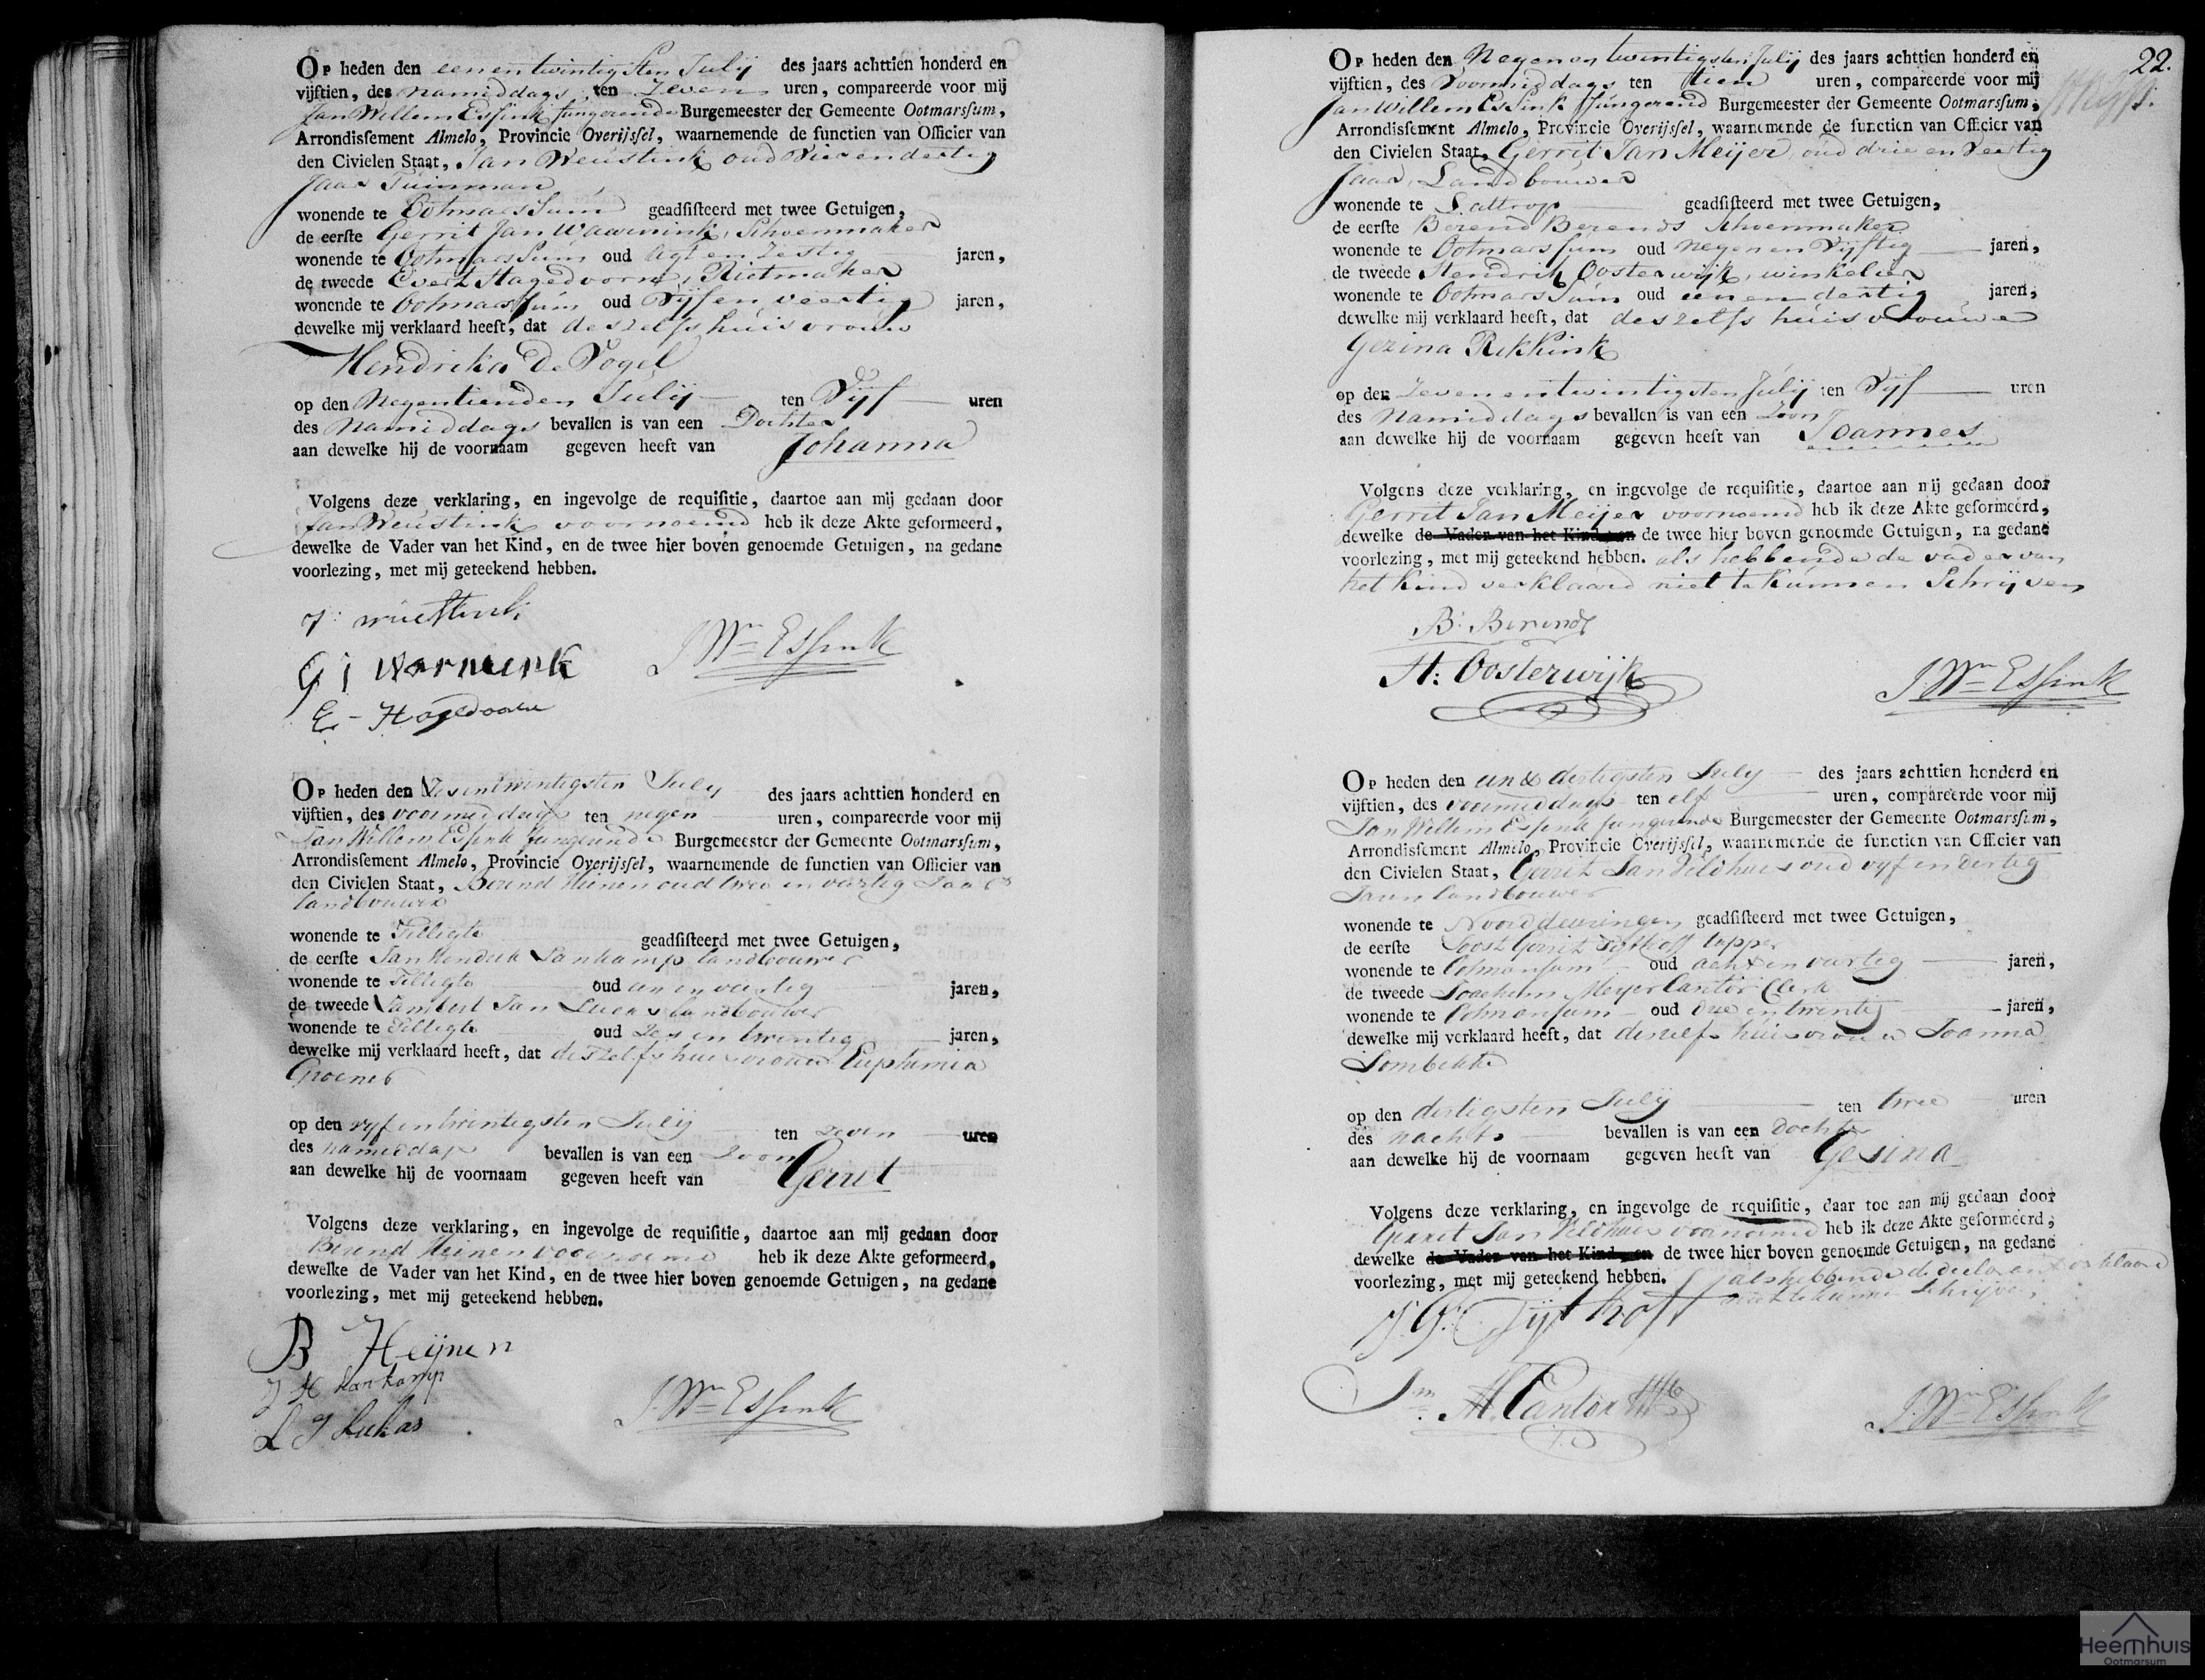 Op heden den eenentwintigsten Julij des jaars achttien honderd en
vijftien, des namiddags ten Zeven uren, compareerde voor mij
Jan Willem Essink fungerende Burgemeester der Gemeente Ootmarssum,
Arrondissement Almelo, Provincie Overijssel, waarnemende de functien van Officier van
den Civielen Staat, Jan Weustink oud Vierendertig
Jaar Tuinman
wonende te Ootmarssum geadsisteerd met twee Getuigen,
de eerste Gerrit Jan Waarnink, Schoenmaker
wonende te Ootmarssum oud Agt en Zestig jaren,
de tweede Evert Hagedoorn, Rietmaker
wonende te Ootmarssum oud Vijfenveertig jaren,
dewelke mij verklaard heeft, dat deszelfs huisvrouw
Hendrika de Vogel
op den Negentienden Julij ten Vijf uren
des Namiddags bevallen is van een Dochter
aan dewelke hij de voornaam gegeven heeft van Johanna
Volgens deze verklaring, en ingevolge de requisitie, daartoe aan mij gedaan door
Jan Weustink voornoemd heb ik deze Akte geformeerd,
dewelke de Vader van het Kind, en de twee hier boven genoemde Getuigen, na gedane
voorlezing, met mij geteekend hebben.
G J Warmink
J. Wm Essink
E - Hagedoorn
Op heden den Zesentwintigsten July des jaars achttien honderd en
vijftien, des voormiddags ten negen uren, compareerde voor mij
Jan Willem Essink fungerende Burgemeester der Gemeente Ootmarssum,
Arrondissement Almelo, Provincie Overijssel, waarnemende de functien van Officier van
den Civielen Staat, Berend Heinen oud twee en veertig Jaar
landbouwer
wonende te Tilligte geadsisteerd met twee Getuigen,
de eerste Jan Hendrik Lankamp landbouwer
wonende te Tilligte oud een en veertig jaren,
de tweede Lambert Jan Lucas landbouwer
wonende te Tilligte oud Zes en twintig jaren,
dewelke mij verklaard heeft, dat deszelfs huisvrouw Euphemia
Groener
op den vyfentwintigsten Julij ten zeven uren
des namiddags bevallen is van een Zoon
aan dewelke hij de voornaam gegeven heeft van Gerrit
Volgens deze verklaring, en ingevolge de requisitie, daartoe aan mij gedaan door
Berend Heinen voornoemd heb ik deze Akte geformeerd,
dewelke de Vader van het Kind, en de twee hier boven genoemde Getuigen, na gedane
voorlezing, met mij geteekend hebben.
B Heijnen
J H Lankamp
L J Lukas
J. Wm Essink
22.
Op heden den Negenentwintigsten Julij des jaars achttien honderd en
vijftien, des Voormiddags ten tien uren, compareerde voor mij
Jan Willem Essink fungerend Burgemeester der Gemeente Ootmarssum,
Arrondissement Almelo, Provincie Overijssel, waarnemende de functien van Officier van
den Civielen Staat, Gerrit Jan Meijer, oud drie en Veertig
Jaar, Landbouwer
wonende te Lattrop geadsisteerd met twee Getuigen,
de eerste Berend Berends Schoenmaker
wonende te Ootmarssum oud Negen en Vijftig jaren,
de tweede Hendrik Oosterwijk, winkelier
wonende te Ootmarssum oud eenendertig jaren,
dewelke mij verklaard heeft, dat deszelfs huisvrouwe
Gezina Rekkink
op den Zevenentwintigsten Julij ten Vijf uren
des Namiddags bevallen is van een Zoon
aan dewelke hij de voornaam gegeven heeft van Joannes
Volgens deze verklaring, en ingevolge de requisitie, daartoe aan mij gedaan door
Gerrit Jan Meijer voornoemd heb ik deze Akte geformeerd,
dewelke de Vader van het Kind, en de twee hier boven genoemde Getuigen, na gedane
voorlezing, met mij geteekend hebben. als hebbende de vader van
het Kind verklaard niet te kunnen Schrijven
B: Berends
H: Oosterwijk
J. Wm Essink
Op heden den een & dertigsten July des jaars achttien honderd en
vijftien, des voormiddags ten elf uren, compareerde voor mij
Jan Willem Essink fungerende Burgemeester der Gemeente Ootmarssum,
Arrondissement Almelo, Provincie Overijssel, waarnemende de functien van Officier van
den Civielen Staat, Gerrit Jan Veldhuis oud vyf en dertig
Jaren landbouwer
wonende te Noorddeurningen geadsisteerd met twee Getuigen,
de eerste Joost Gerrit Tijthoff tapper
wonende te Ootmarssum oud acht en veertig jaren,
de tweede Joachim Meyer Cantor Clerk
wonende te Ootmarssum oud drie en twintig jaren,
dewelke mij verklaard heeft, dat deszelfs huisvrouw Joanna
op den dertigsten July ten twee uren
des nachts bevallen is van een dochter
aan dewelke hij de voornaam gegeven heeft van Gesina
Volgens deze verklaring, en ingevolge de requisitie, daar toe aan mij gedaan door
Gerrit Jan Veldhuis voornoemd heb ik deze Akte geformeerd,
dewelke de Vader van het Kind, en de twee hier boven genoemde Getuigen, na gedane
voorlezing, met mij geteekend hebben. als hebbende de declarant verklaard
niet te kunnen Schrijven
J. G. Tijthoff
Jm. M. Cantor
J. Wm Essink
Heemhuis
Ootmarsum